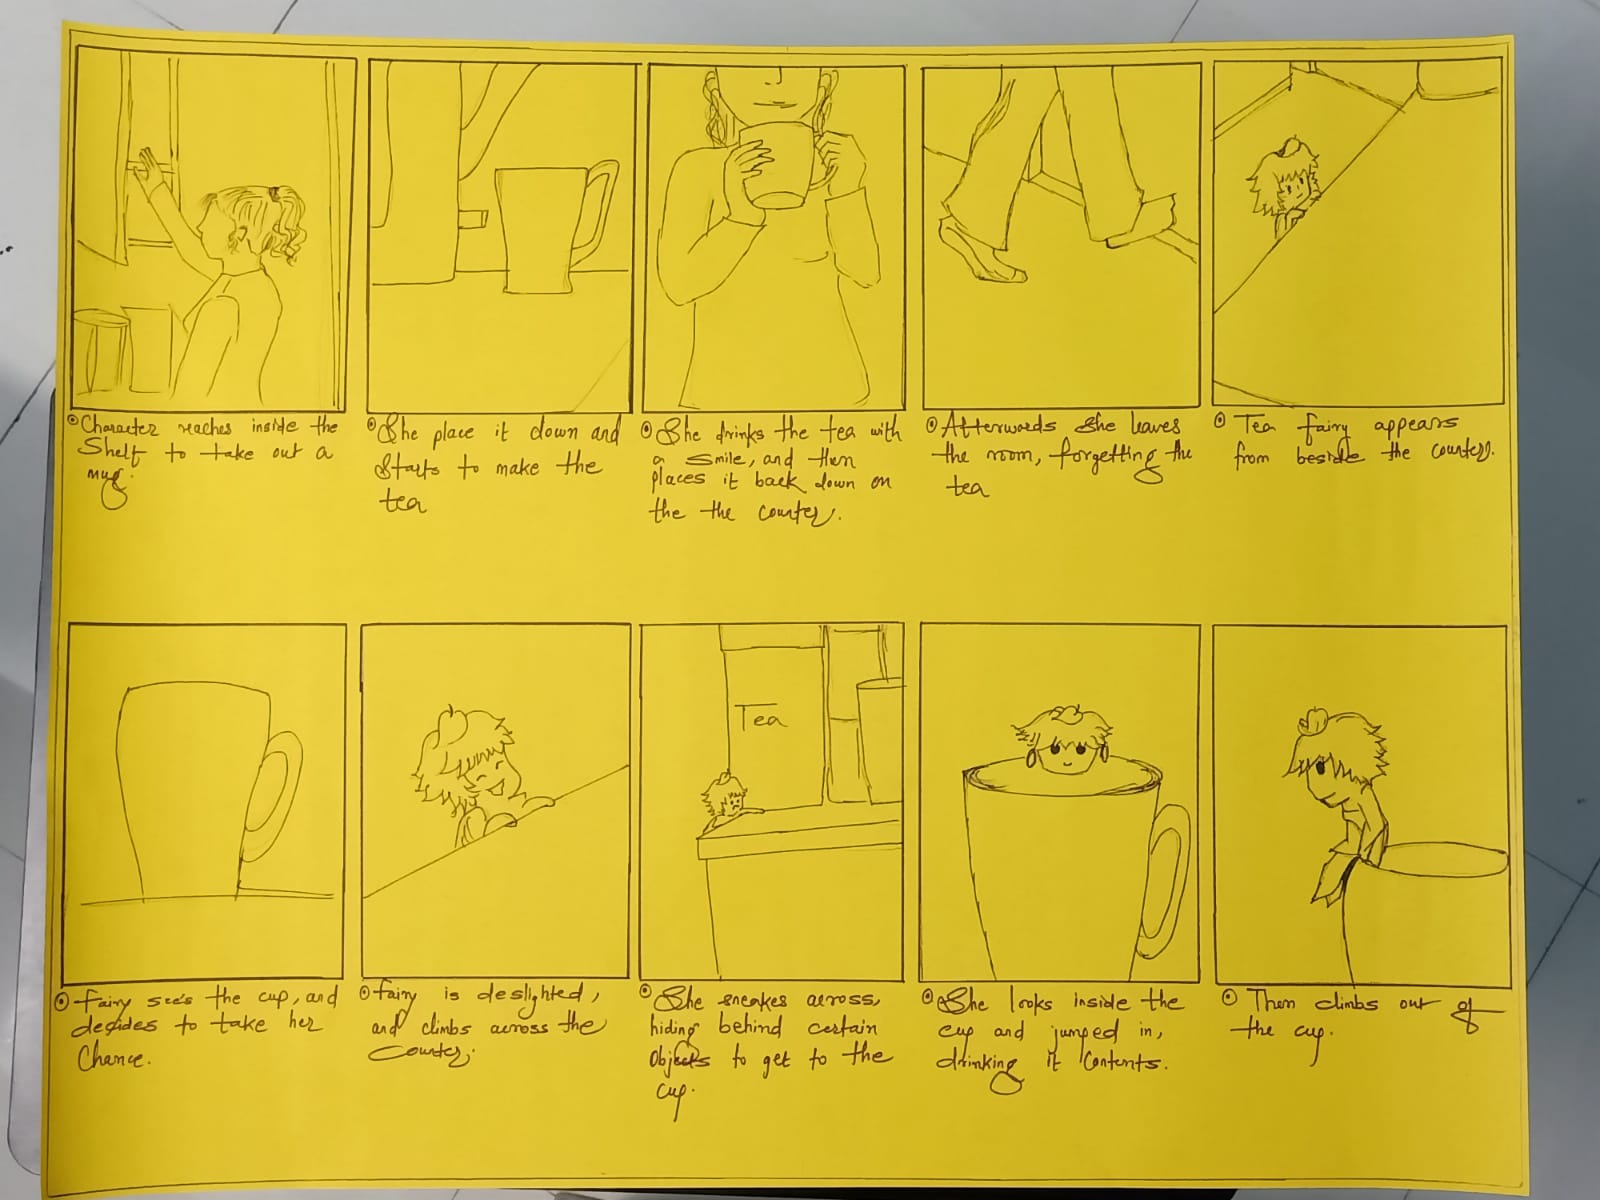 Character reaches inside the
Shelf to take out a
mug.
She place it down and
Starts to make the
tea
She drinks the tea with
a smile, and then
places it back down on
the the counter.
Afterwords she leaves
the room, forgetting the
tea
Tea fairy appears
from beside the counter.
Tea
Fairy sees the cup, and
decides to take her
Chance.
Fairy is deslighted,
and climbs across the
Counter.
She sneakes across,
hiding behind certain
Objects to get to the
cup.
She looks inside the
cup and jumped in,
drinking it contents.
Then climbs out of
the cup.